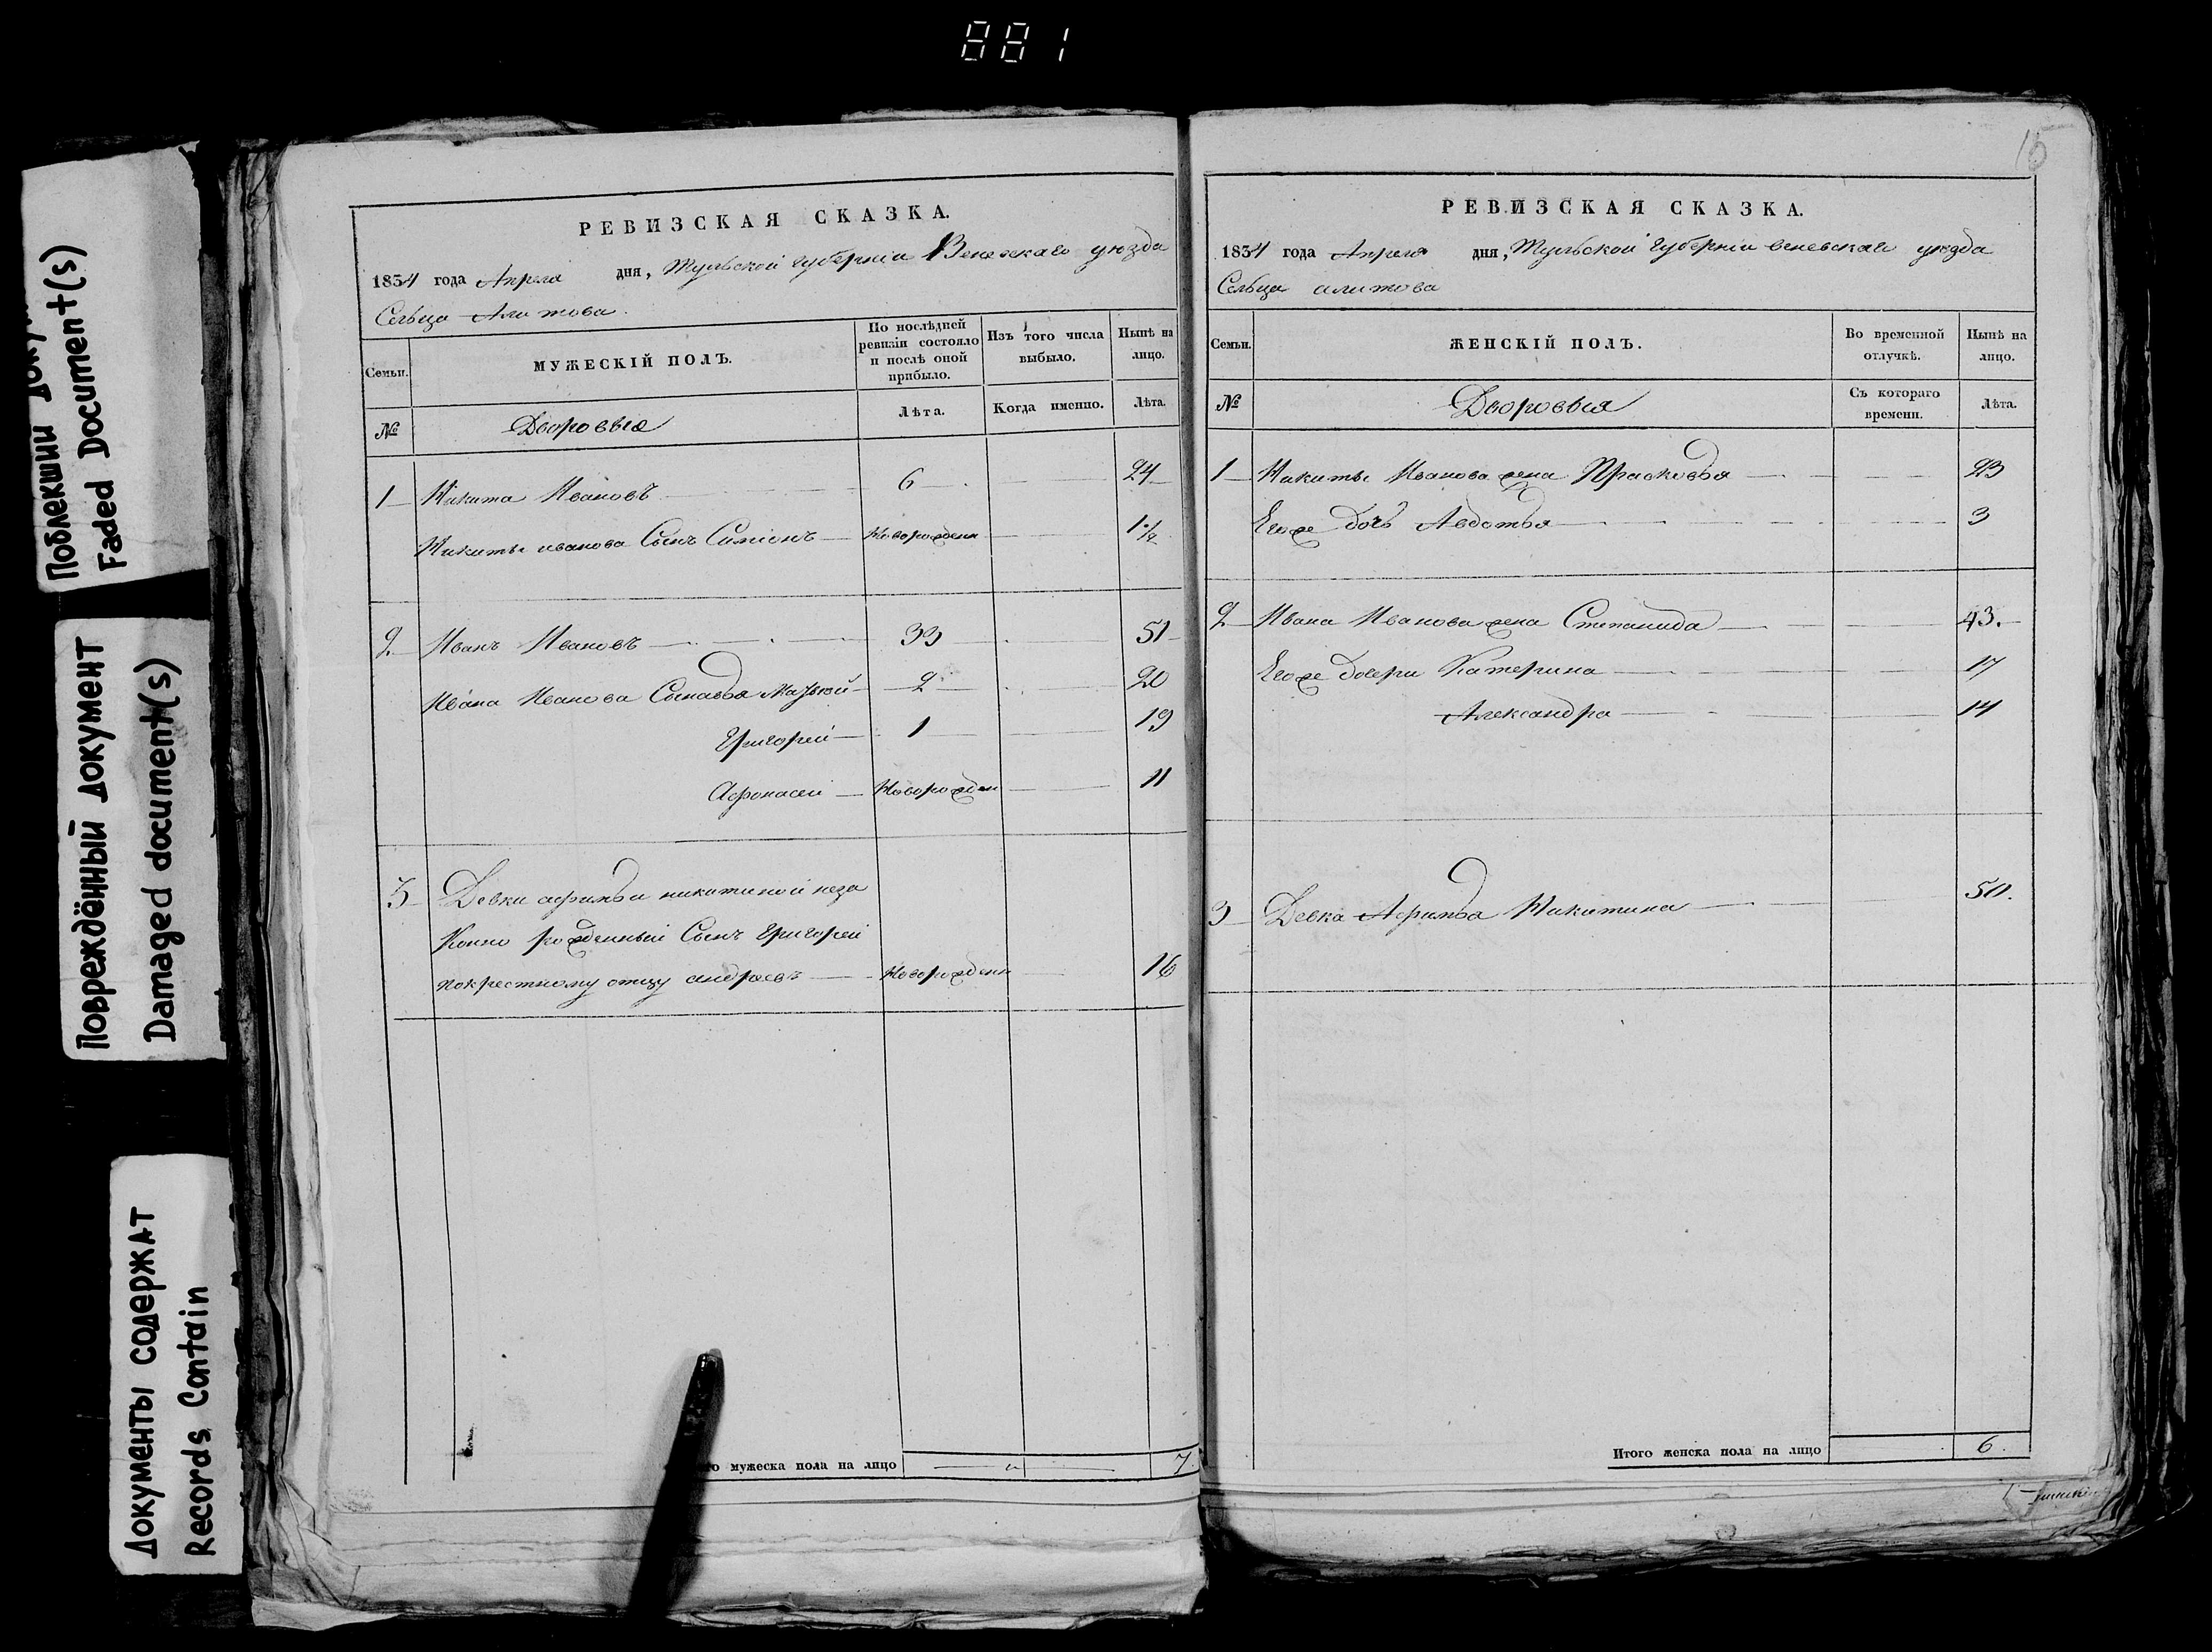 881
Поблекший
Faded Document(s)
Повреждённый документ
Damaged document(s)
Документы содержат
Records Contain
РЕВИЗСКАЯ СКАЗКА.
1834 года Апреля дня, Тульской губерніи Веневскаго уюзда
Сельца Алитова.
Семьи.
МУЖЕСКІЙ ПОЛЪ.
По послѣдней ревизіи состояло и послѣ оной прибыло.
Изъ того числа выбыло.
Нынѣ на лицо.
№
Дворовыя
Лѣта.
Когда именно.
Лѣта.
1 Никита Ивановъ 6 24
Никиты иванова Сынъ Симіонъ Новорожденн 1 1/2
2 Иванъ Ивановъ 33 51
Ивана Иванова Сыновья 2 20
Григорей 1 19
Афонасей Новорожден 11
3 Девки афимьи никитиной неза
Конно рожденный Сынъ Григорей
покрестному отцу андреевъ Новорожденн 16
мужеска пола на лицо 7.
15
РЕВИЗСКАЯ СКАЗКА.
1834 года Апреля дня, Тульской Губерніи веневскаго уюзда
Сельца алитова
Семьи.
ЖЕНСКІЙ ПОЛЪ.
Во временной отлучкѣ.
Нынѣ на лицо.
№
Дворовыя
Съ котораго времени.
Лѣта.
1 Никиты Иванова жена Прасковья 23
Егоже дочь Авдотья 3
2 Ивана Иванова жена Степанида 43.
Егоже дочери Катерина 17
Александра 14
3 Девка Афимья Никитина 50.
Итого женска пола на лицо 6.